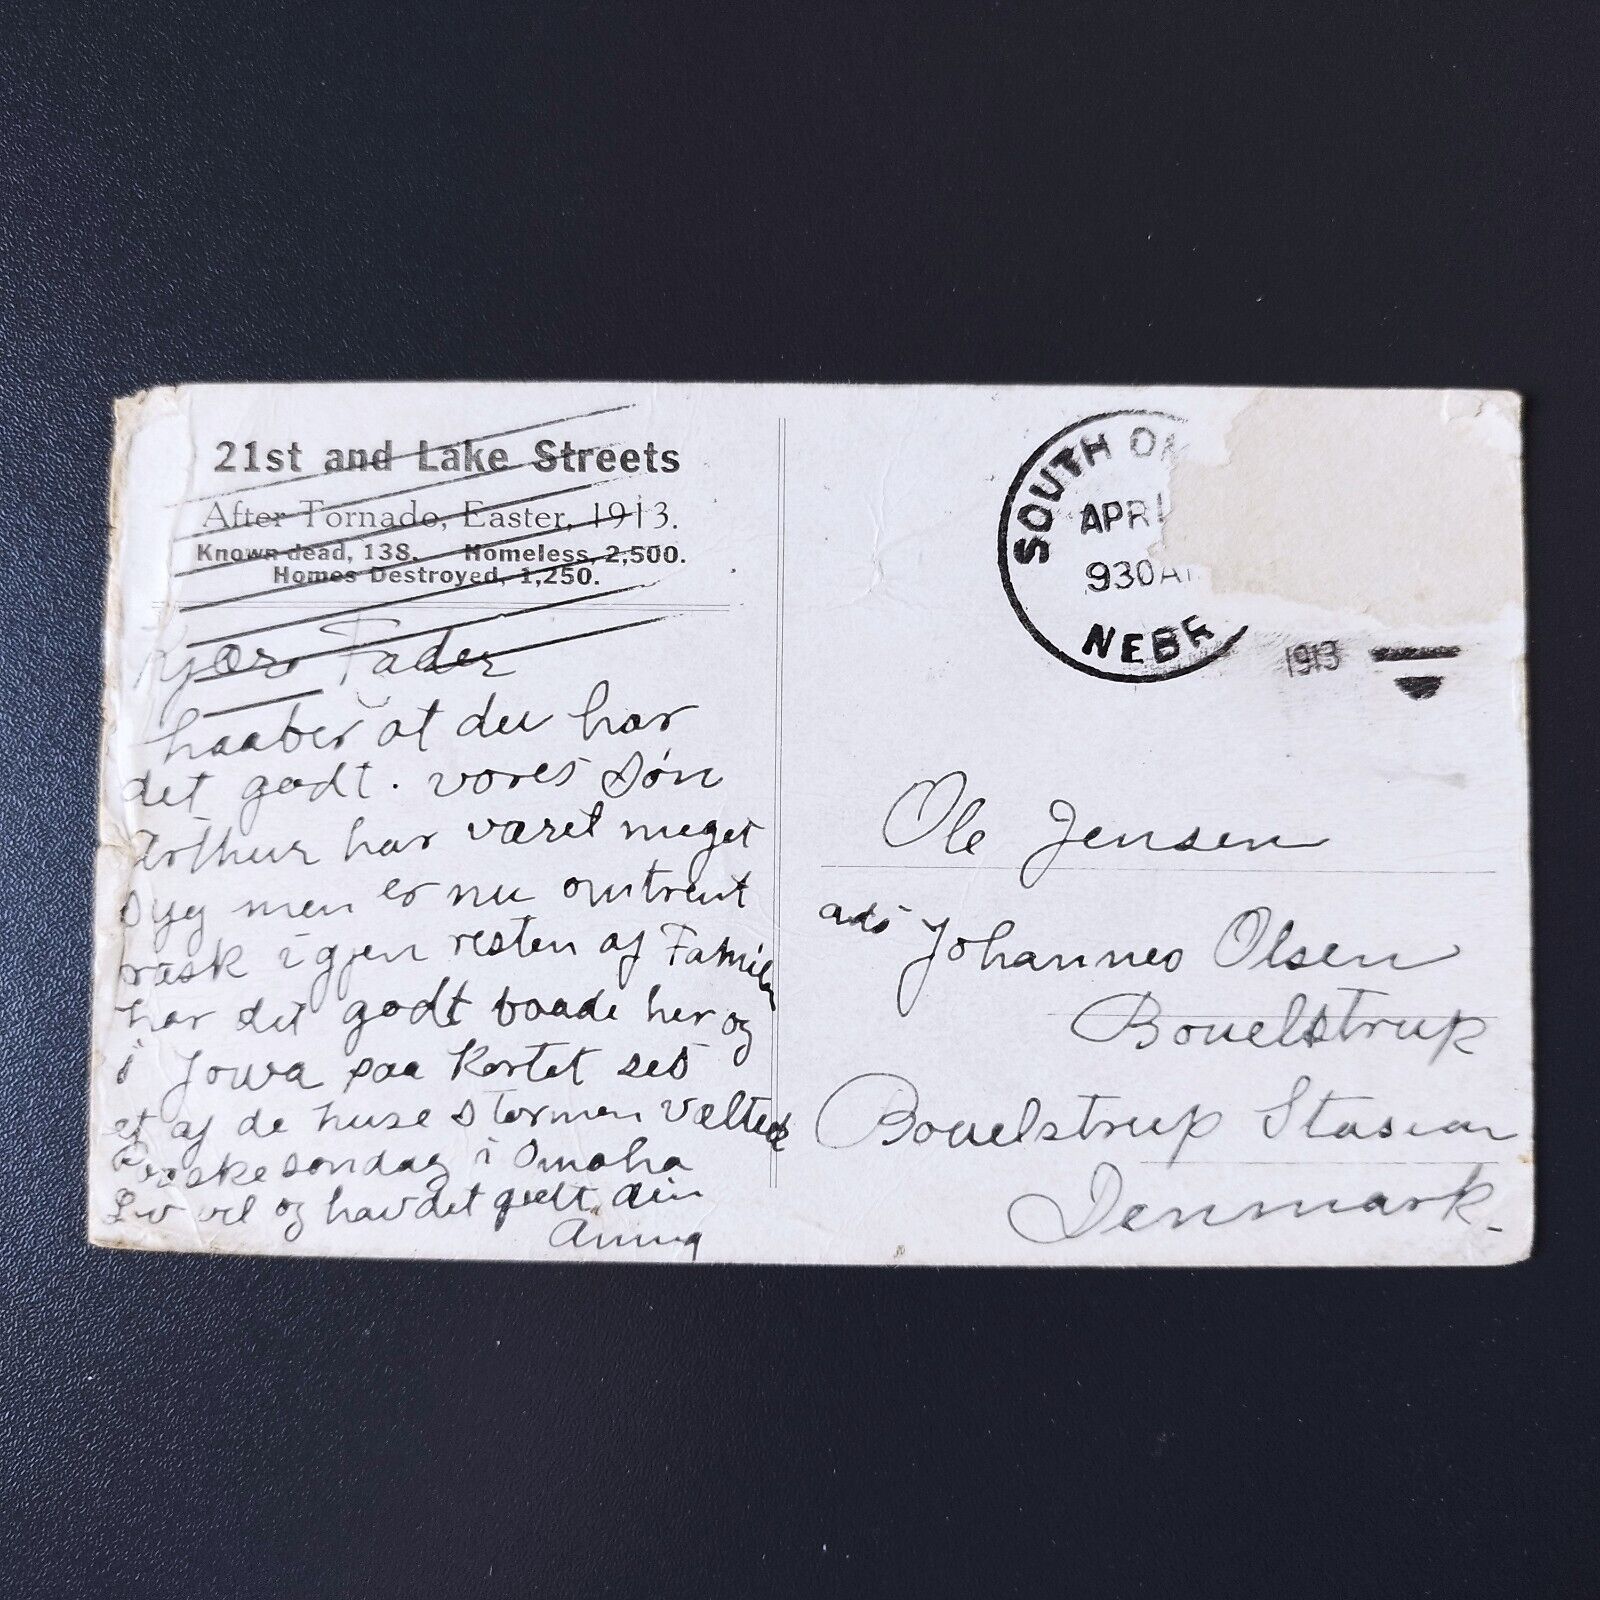 21st and Lake Streets
After Tornado, Easter, 1913.
Known dead, 138. Homeless, 2,500.
Homes Destroyed, 1,250.
Kjære Fader
haaber at du har
det godt. vores søn
Arthur har været meget
syg men er nu omtrent
rask igjen resten af Familien
har det godt baade her og
i Jowa paa Kortet ses
et af de huse stormen væltede
Paaskesøndag i Omaha
Lev vel og hav det godt din
Anna
SOUTH OM
APR
930A
NEBR
1913
Ole Jensen
ads Johannes Olsen
Bouelstrup
Bouelstrup Stasion
Denmark-